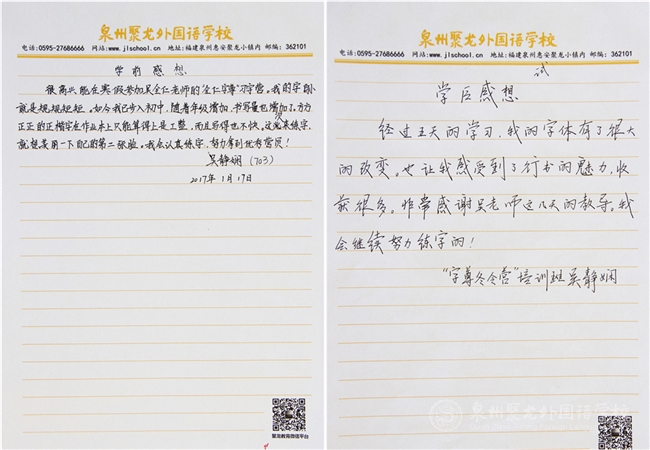 泉州聚龙外国语学校
电话:0595-27686666 网站:www.jlschool.cn 地址:福建泉州惠安聚龙小镇内 邮编:362101
学前感想
很高兴能在寒假参加吴全仁老师的"全仁字尊"习字营。我的字
就是规规矩矩。如今我已步入初中,随着年级增加,书写量也增加了,方方
正正的正楷字在作业本上只能算得上是工整,而且写得也不快。这次来练字,
就想要用一下自己的第二张脸。我会认真练字,努力拿到优秀营员!
吴静娴(703)
2017年1月17日
聚龙教育微信平台
泉州聚龙外国语学校
电话:0595-27686666 网站:www.jlschool.cn 地址:福建泉州惠安聚龙小镇内 邮编:362101
试
学后感想
经过五天的学习,我的字体有了很大
的改变。也让我感受到了行书的魅力,收
获很多。非常感谢吴老师这几天的教导。我
会继续努力练字的!
"字尊冬令营"培训班吴静娴
泉州聚龙外国语学校